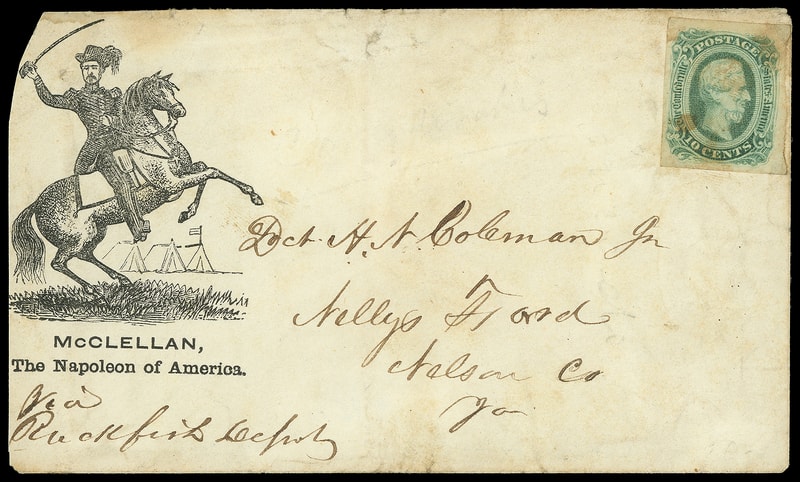 POSTAGE
The Confederate States America
10 CENTS
Doct. H. N. Coleman Jr
Nellys Ford
Nelson Co
Va
McCLELLAN,
The Napoleon of America.
Via
Rockfish Depot